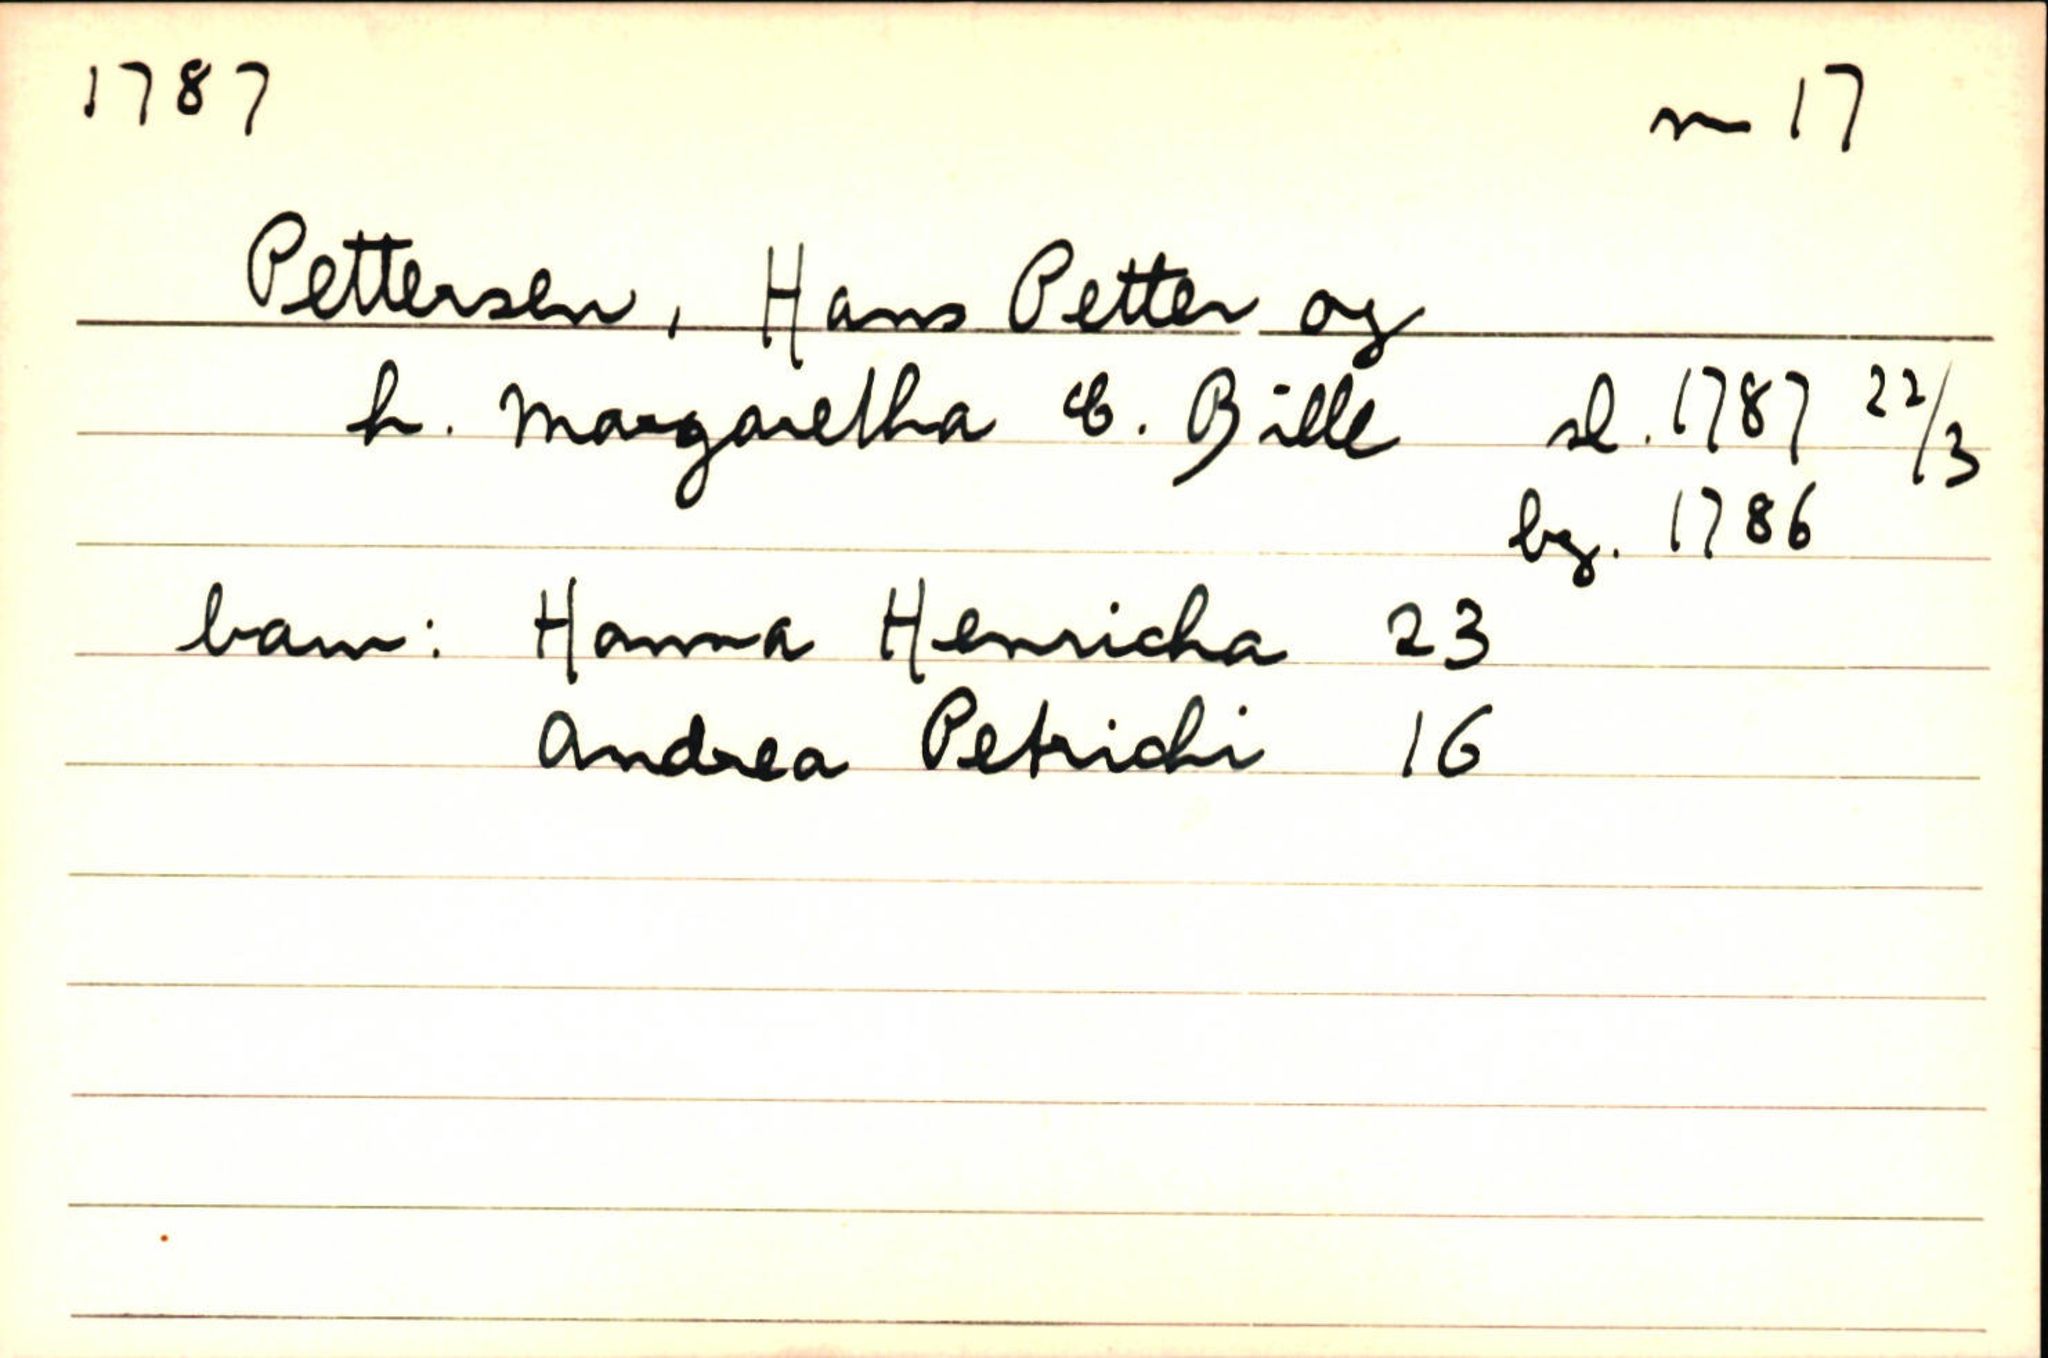 1787 m 17
Pettersen, Hans Petter og
h. Margaretha C. Bille sl. 1787 22/3
bg. 1786
barn: Hanna Henricha 23
Andrea Petrichi 16